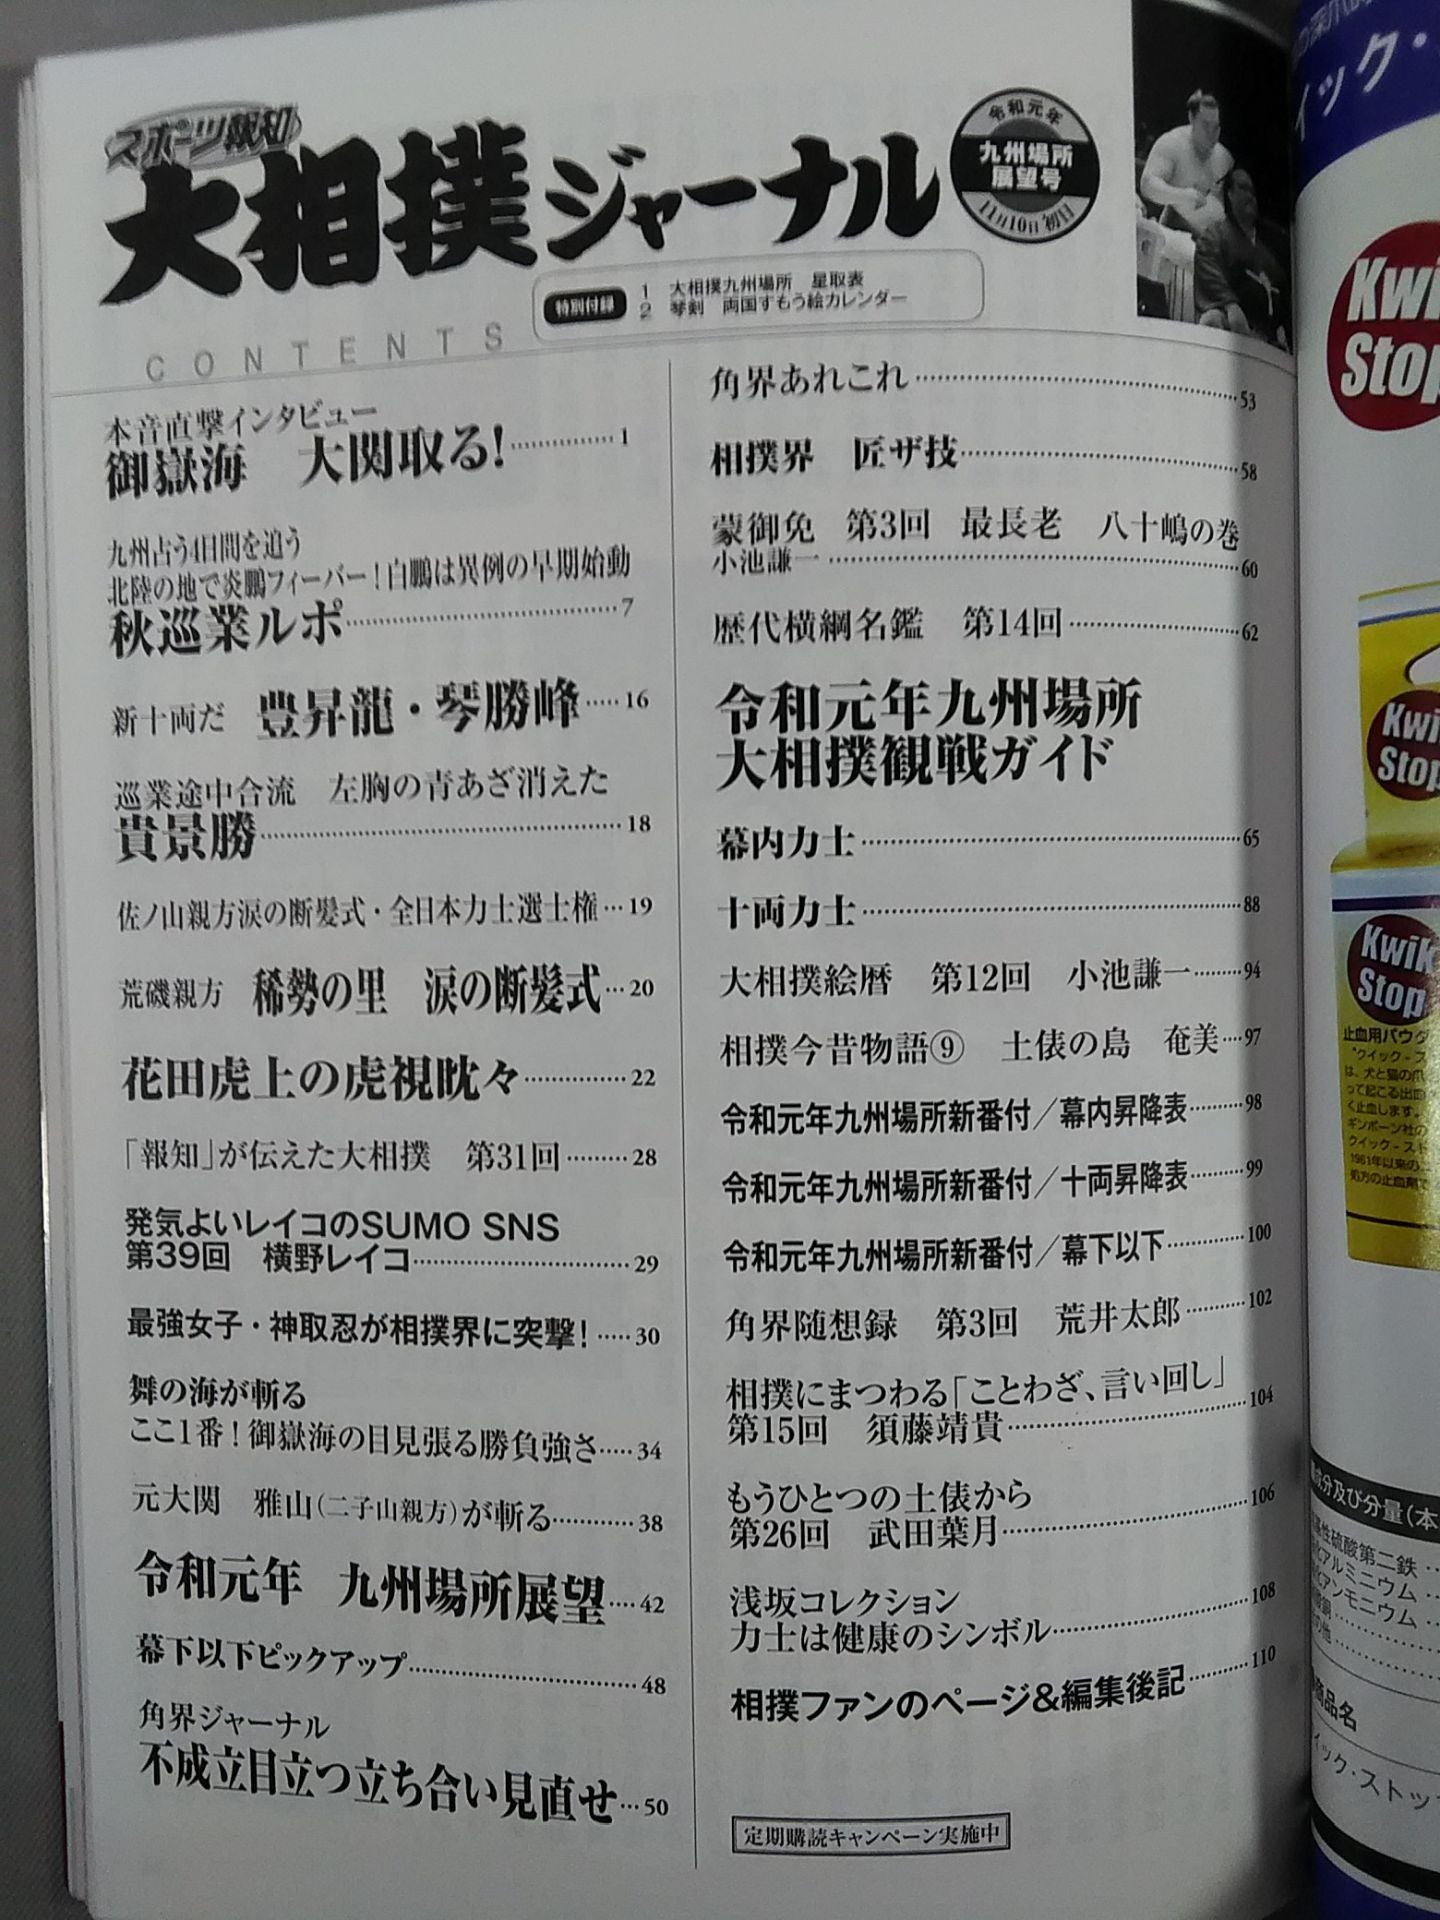 スポーツ報知
大相撲ジャーナル
令和元年
九州場所
展望号
11月10日初日
特別付録
1 大相撲九州場所 星取表
2 琴剣 両国すもう絵カレンダー
CONTENTS
本音直撃インタビュー
御嶽海 大関取る!……………1
九州占う4日間を追う
北陸の地で炎鵬フィーバー!白鵬は異例の早期始動
秋巡業ルポ……………7
新十両だ 豊昇龍・琴勝峰……16
巡業途中合流 左胸の青あざ消えた
貴景勝……………18
佐ノ山親方涙の断髪式・全日本力士選士権…19
荒磯親方 稀勢の里 涙の断髪式…20
花田虎上の虎視眈々……………22
「報知」が伝えた大相撲 第31回………28
発気よいレイコのSUMO SNS
第39回 横野レイコ……………29
最強女子・神取忍が相撲界に突撃!……30
舞の海が斬る
ここ1番!御嶽海の目見張る勝負強さ……34
元大関 雅山(二子山親方)が斬る…………38
令和元年 九州場所展望……42
幕下以下ピックアップ……………48
角界ジャーナル
不成立目立つ立ち合い見直せ…50
角界あれこれ……………53
相撲界 匠ザ技……………58
蒙御免 第3回 最長老 八十嶋の巻
小池謙一……………60
歴代横綱名鑑 第14回……………62
令和元年九州場所
大相撲観戦ガイド
幕内力士……………65
十両力士……………88
大相撲絵暦 第12回 小池謙一………94
相撲今昔物語⑨ 土俵の島 奄美…97
令和元年九州場所新番付／幕内昇降表………98
令和元年九州場所新番付／十両昇降表………99
令和元年九州場所新番付／幕下以下…………100
角界随想録 第3回 荒井太郎………102
相撲にまつわる「ことわざ、言い回し」
第15回 須藤靖貴……………104
もうひとつの土俵から
第26回 武田葉月……………106
浅坂コレクション
力士は健康のシンボル……………108
相撲ファンのページ&編集後記………110
定期購読キャンペーン実施中
イック・
Kwi
Stop
Kwi
Stop
Kwik
Stop
止血用パウダ
"クイック-ス
は、犬と猫の爪
って起こる出血
く止血します。
ギンボーン社の
クイック-スト
1961年以来の
処方の止血剤で
成分及び分量(本
基性硫酸第二鉄…
化アルミニウム…
化アンモニウム…
の他
商品名
イック・ストッ